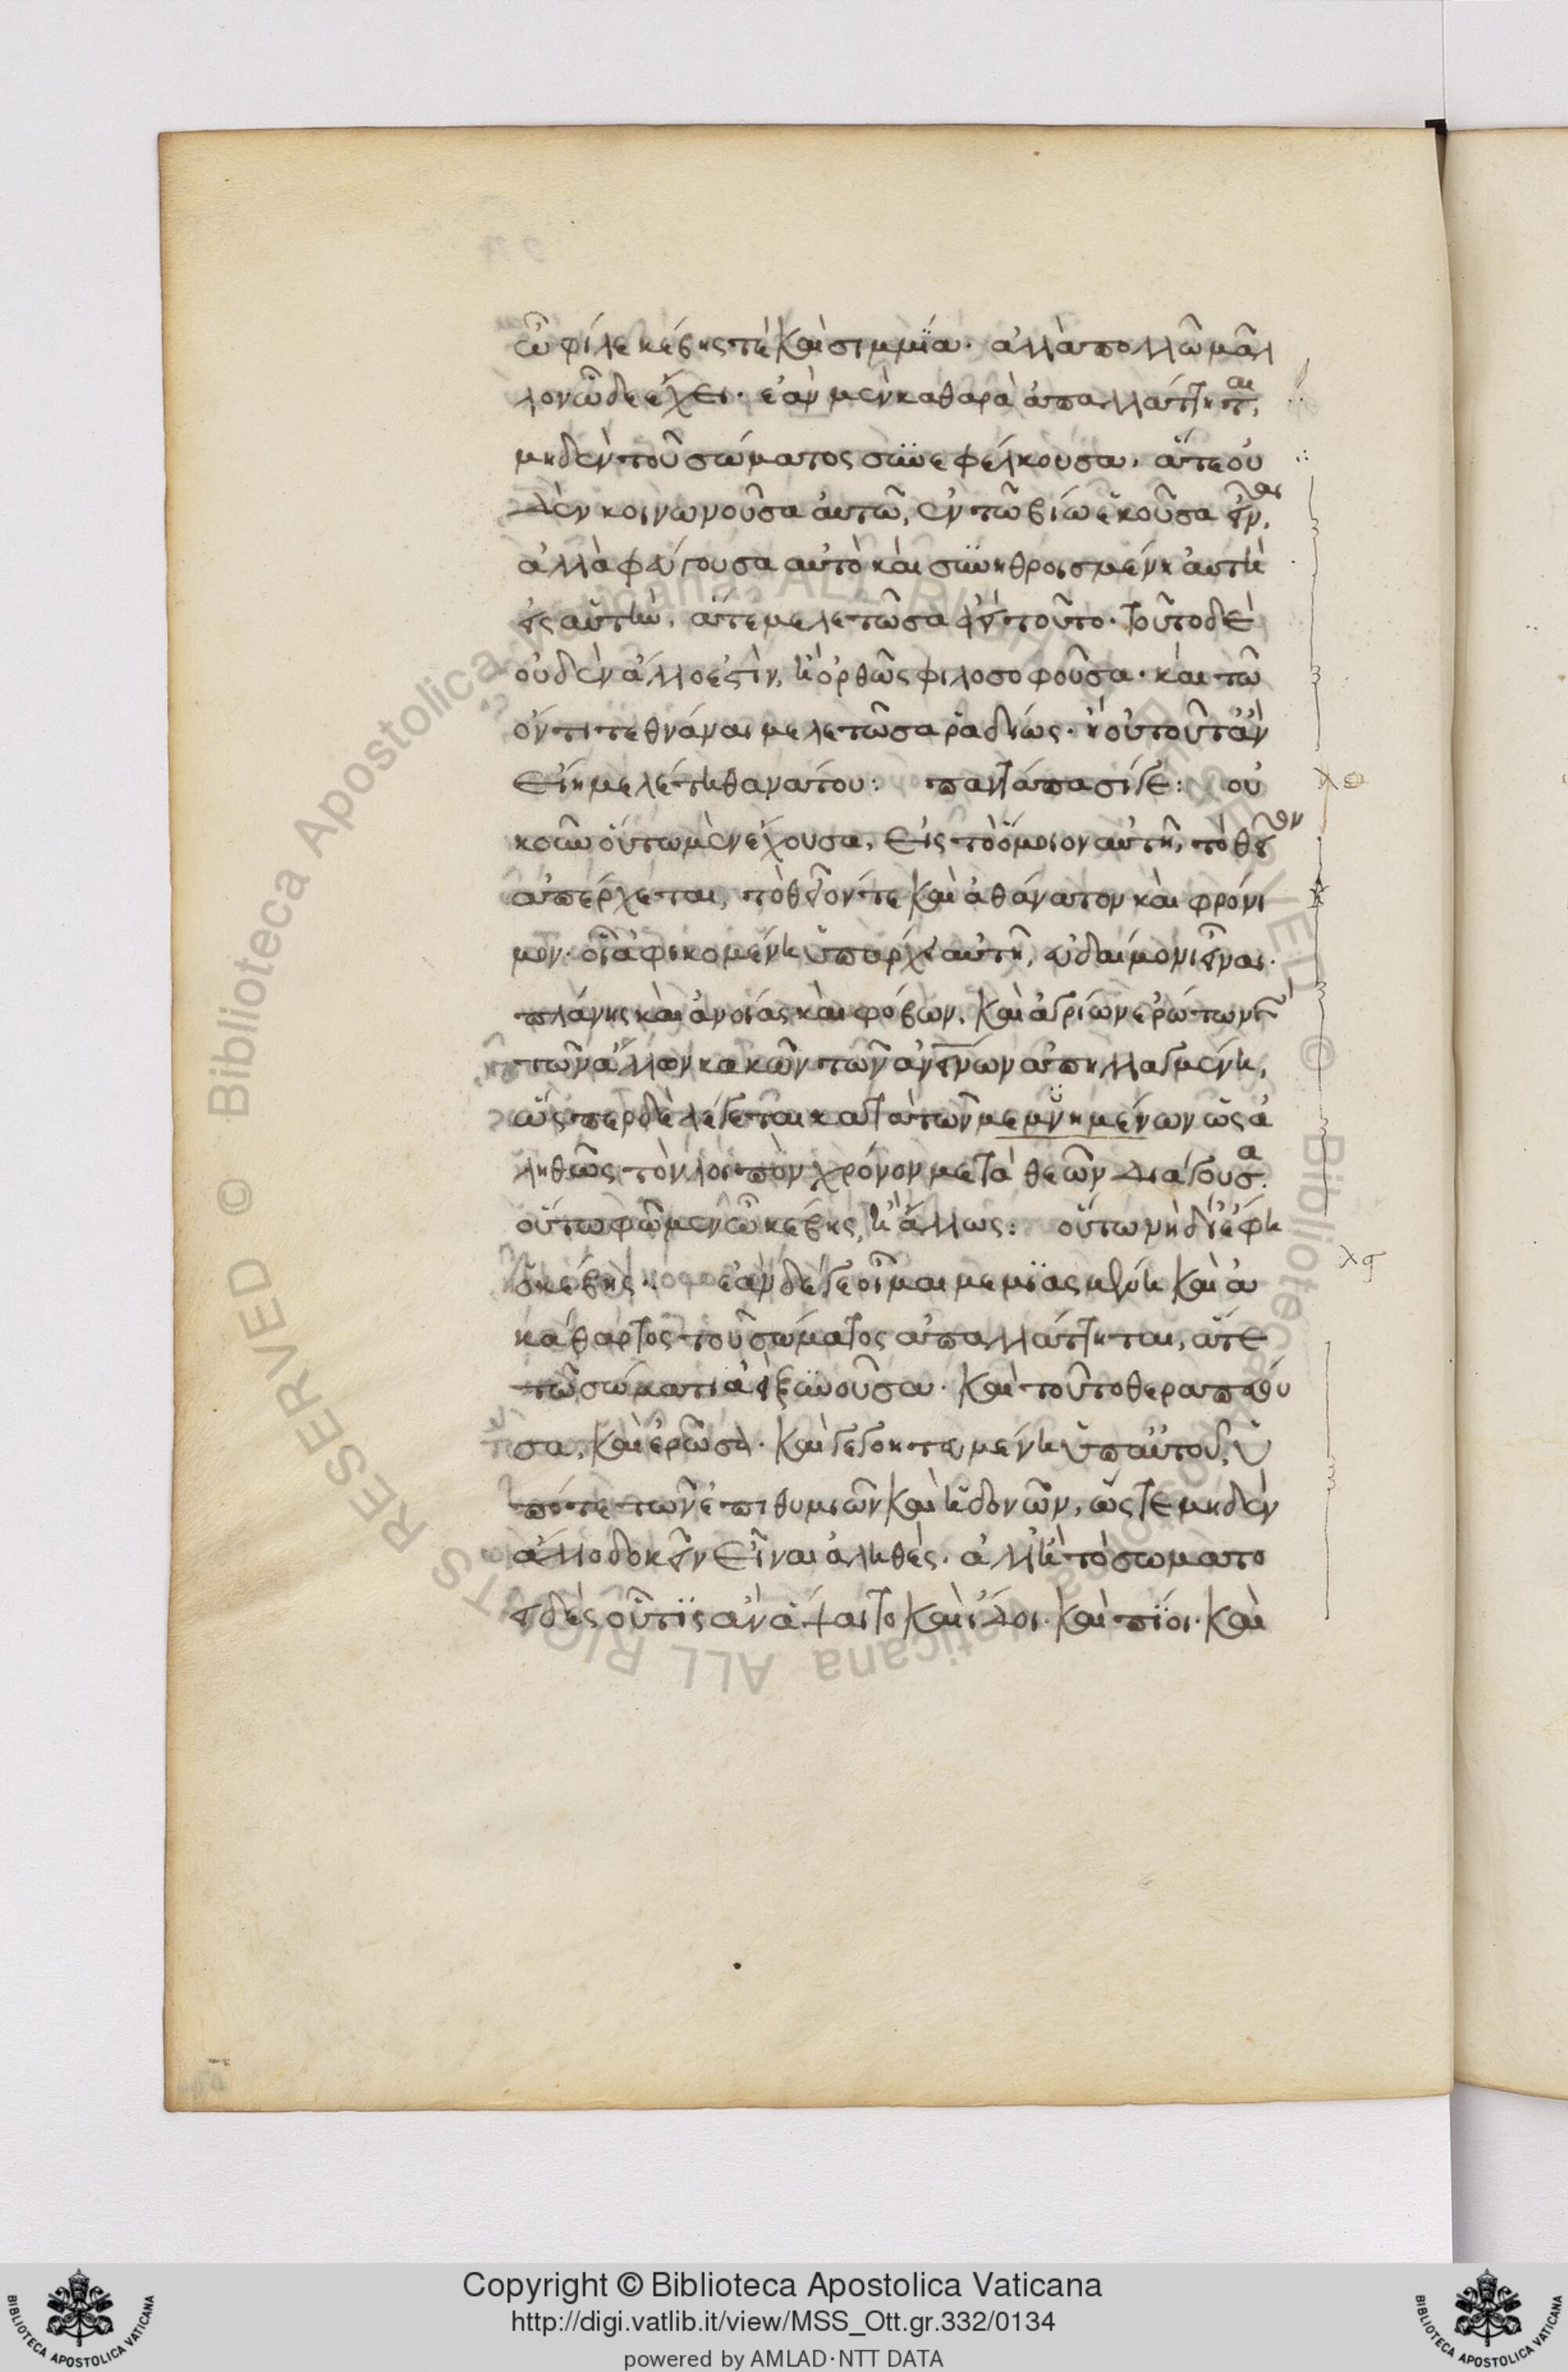 ὦ φίλε κέβης τὲ καὶ σιμμΐα· ἀλλὰ πολλῶ μᾶλ
λον ὧδε ἔχει· ἐὰν μὲν καθαρὰ ἀπαλλάττηται,
μηδὲν τοῦ σώματος συνεφέλκουσα, ἅτε οὐ
δὲν κοινωνοῦσα αὐτῶ, ἐν τῶ βίω ἑκοῦσα εἶναι,
ἀλλὰ φεύγουσα αὐτὸ καὶ συνηθροισμένη αὐτὴ
εἰς αὑτὴν, ἅτε μελετῶσα ἀεὶ τοῦτο· τοῦτο δὲ
οὐδὲν ἄλλο ἐστὶν, ἢ ὀρθῶς φιλοσοφοῦσα· καὶ τῶ
ὄντι τεθνάναι μελετῶσα ῥαδίως· ἢ οὐ τοῦτ ἂν
εἴη μελέτη θανάτου: παντάπασί γε: οὐ
κοῦν οὕτω μὲν ἔχουσα, εἰς τὸ ὅμοιον αὐτῆ, τὸ θεῖον
ἀπέρχεται, τὸ θεῖόν τε καὶ ἀθάνατον καὶ φρόνι
μον· οἷ ἀφικομένη ὑπάρχει αὐτῆ, εὐδαίμονι εἶναι·
πλάνης καὶ ἀνοίας καὶ φόβων, καὶ ἀγρίων ἐρώτων καὶ
τῶν ἄλλων κακῶν τῶν ἀνείνων ἀπηλλαγμένη,
ὥσπερ δὲ λέγεται κατὰ τῶν μεμυημένων ὡς ἀ
ληθῶς τὸν λοιπὸν χρόνον μετὰ θεῶν διάγουσα.
οὕτω φῶμεν ὦ κέβης, ἢ ἄλλως: οὕτω νὴ δί ἔφη
ὁ κέβης: ἐὰν δέ γε οἶμαι μεμϊασμένη καὶ ἀ
κάθαρτος τοῦ σώματος ἀπαλλάττηται, ἅτε
τῶ σώματι ἀεὶ ξυνοῦσα· καὶ τοῦτο θεραπεύου
σα, καὶ ἐρῶσα· καὶ γεγοητευμένη ὑπ αὐτοῦ, ὑ
πό τε τῶν ἐπιθυμιῶν καὶ ἡδονῶν, ὥστε μηδὲν
ἄλλο δοκεῖν εἶναι ἀληθὲς· ἀλλ ἢ τὸ σωματο
ειδὲς οὗ τϊς ἂν ἅψαιτο καὶ ἴδοι· καὶ πΐοι· καὶ
Copyright © Biblioteca Apostolica Vaticana
http://digi.vatlib.it/view/MSS_Ott.gr.332/0134
powered by AMLAD·NTT DATA